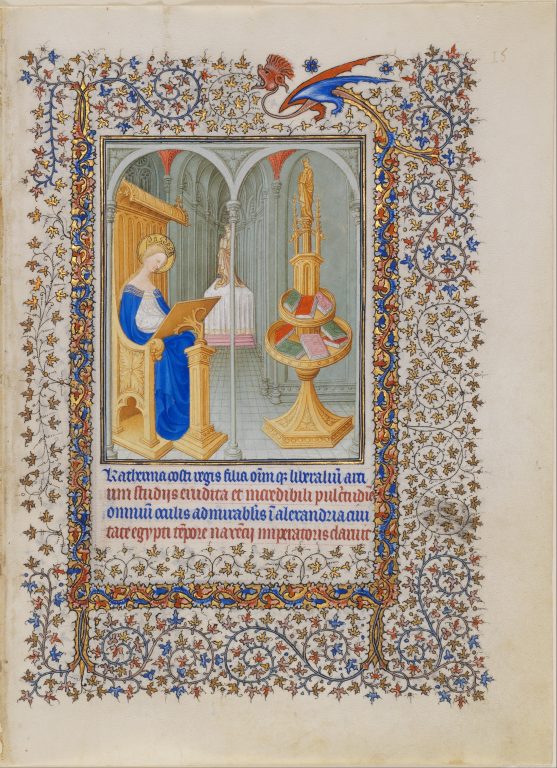 15
Katherina costi regis filia om̄i q̄ liberaliū arti
um studijs erudita et incredibili pulc̄tudīe
omniū oculis admirabilis ī alexandria ciui
tate egypti tp̄ore maxēcij imperatoris claruit